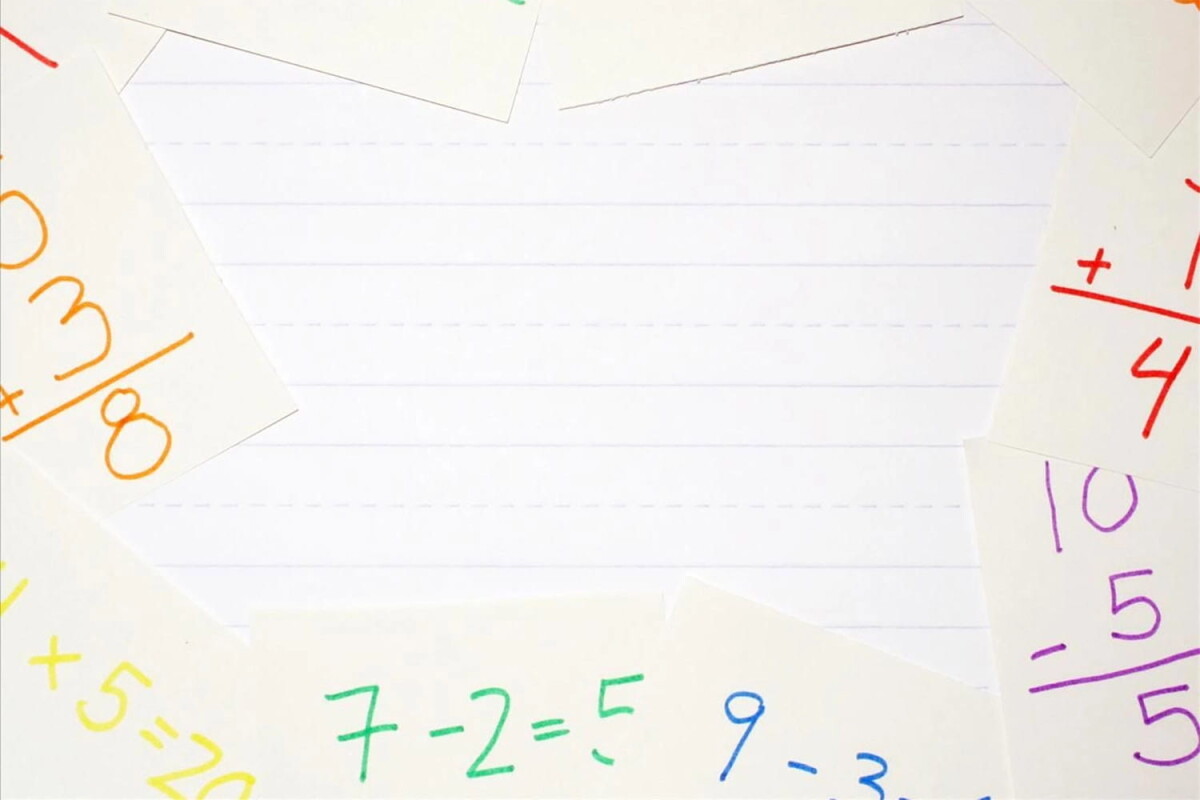 3
+
8
+
4
10
- 5
5
+ 5 = 20
7 - 2 = 5
9 - 3